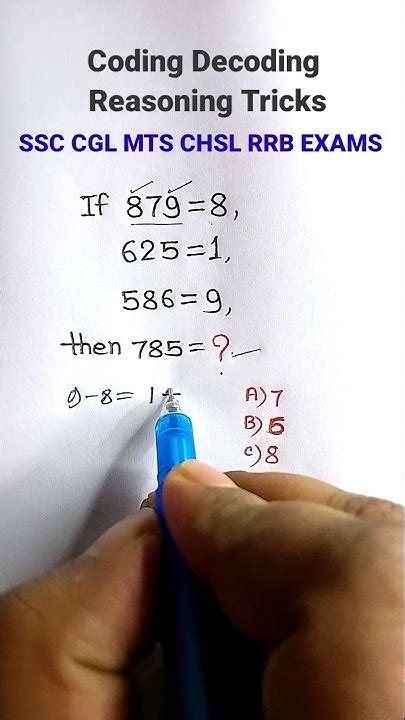 Coding Decoding
Reasoning Tricks
SSC CGL MTS CHSL RRB EXAMS
If 879=8,
625=1,
586=9,
then 785=?
9-8= 1+
A) 7
B) 6
C) 8